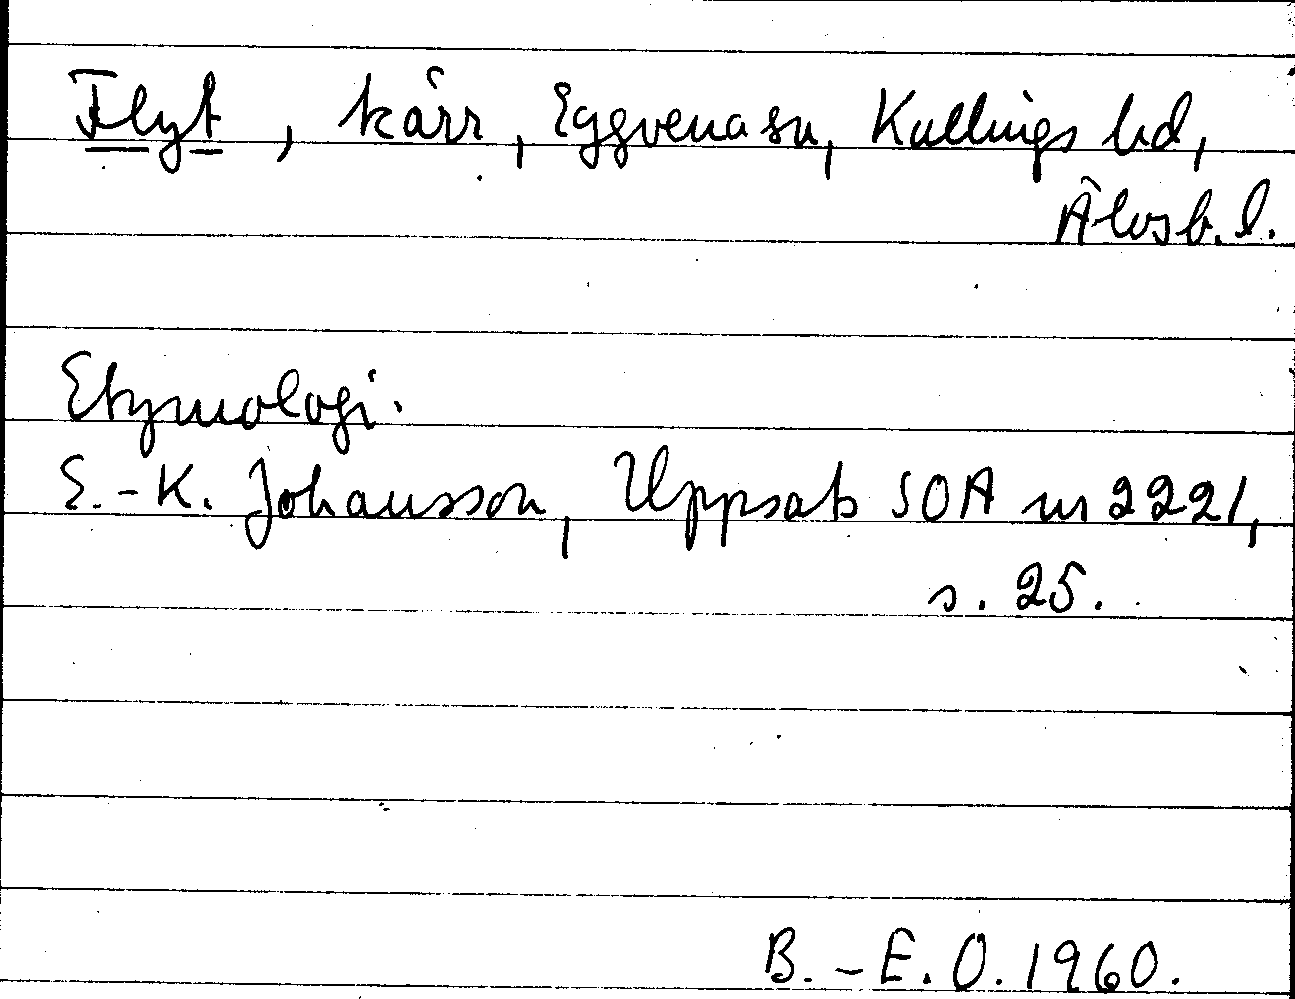 Flyt, kärr, Eggvena sn, Kullings hd,
Älvsb. l.
Etymologi.
E.-K. Johansson, Uppsats SOA nr 2221,
s. 25.
B.-E. O. 1960.